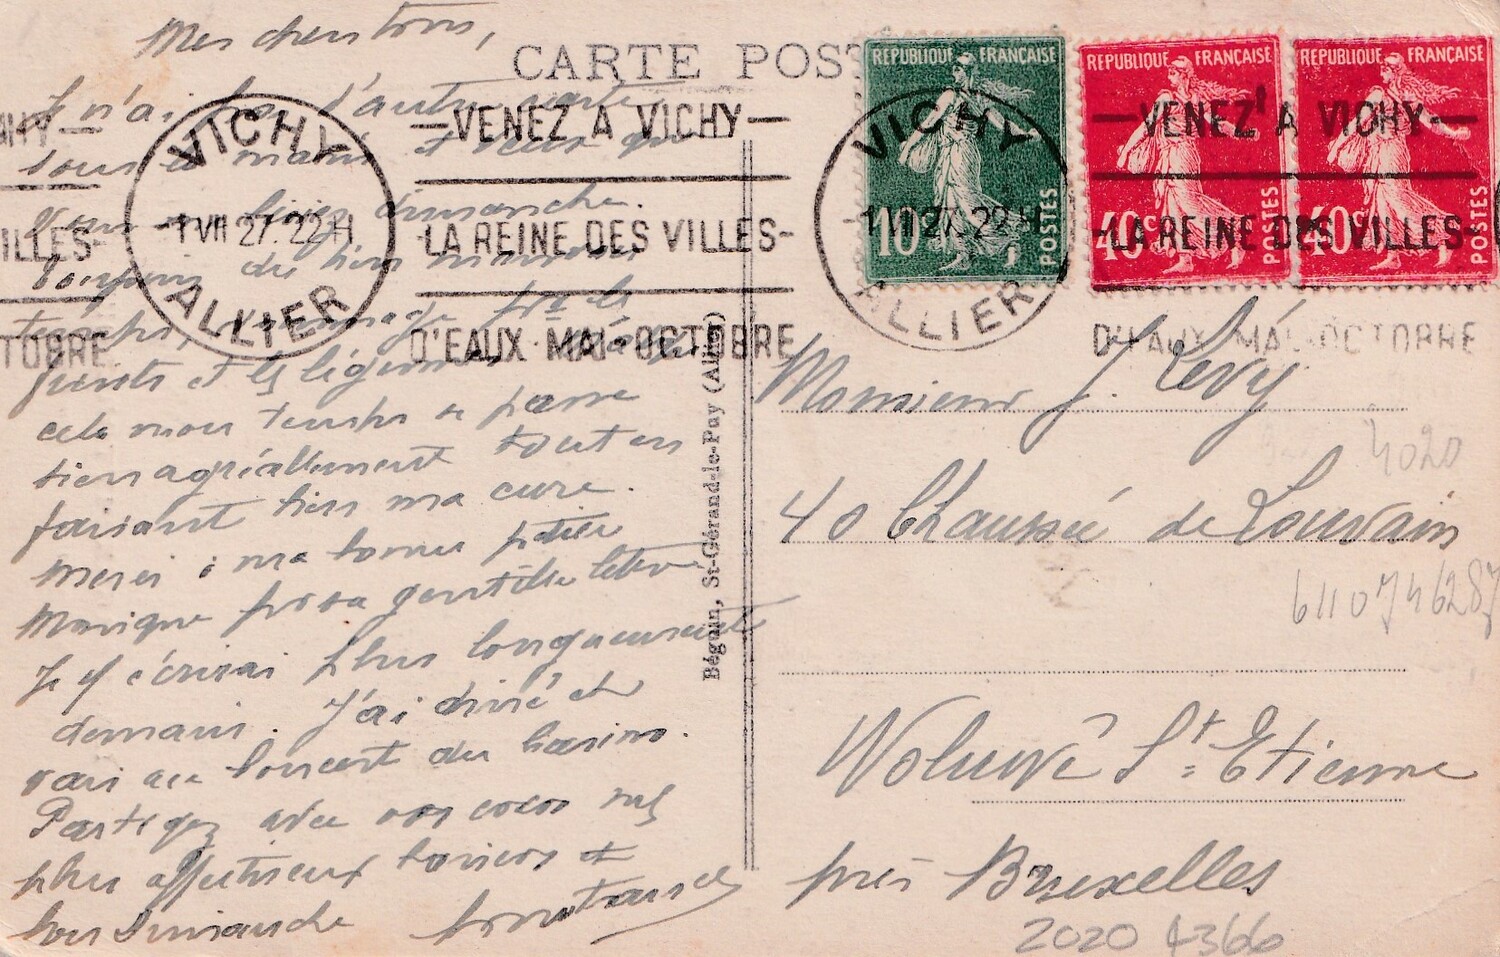 CARTE POST
VICHY
-1 VII 27. 22 H
ALLIER
—VENEZ A VICHY—
LA REINE DES VILLES-
D'EAUX MAI-OCTOBRE
REPUBLIQUE FRANÇAISE
10c
POSTES
REPUBLIQUE FRANÇAISE
40c
POSTES
REPUBLIQUE FRANÇAISE
40c
POSTES
VICHY
-1 VII 27. 22 H
ALLIER
—VENEZ A VICHY—
-LA REINE DES VILLES-
D'EAUX MAI-OCTOBRE
HY—
ILLES-
TOBRE
Mes chers tous,
Je n'ai pas d'autre carte
sous la main et veux que
dimanche.
Toujours du bien mauvais
temps, dommage pr les
fruits et les légumes,
cela mon temps se passe
bien agréablement tout en
faisant bien ma cure.
Merci à ma bonne petite
Monique pour sa gentille lettre
Je y écrirai plus longuement
demain. J'ai diné et
vais au Concert du Casino.
Partagez avec vos cocos mes
plus affectueux baisers et
bon Dimanche
Béguin, St-Gérand-le-Puy (Allier)
Monsieur J. Lévy
40 Chaussée de Louvain
Woluwé St Etienne
près Bruxelles
4020
6110746287
2020 4366